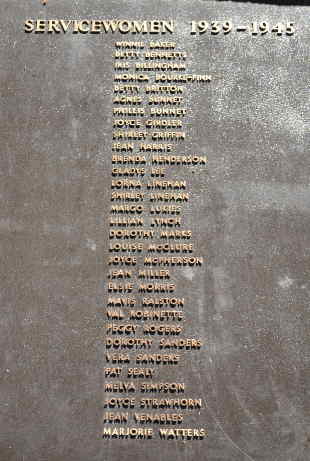 SERVICEWOMEN 1939-1945
WINNIE BAKER
BETTY BENNETTS
IRIS BILLINGHAM
MONICA BOURKE-FINN
BETTY BRITTON
AGNES BUNNET
PHILLIS BUNNET
JOYCE GINDLER
SHIRLEY GRIFFIN
JEAN HARRIS
BRENDA HENDERSON
GLADYS LEE
LORNA LINEHAN
SHIRLEY LINEHAN
MARGO LUCIES
LILLIAN LYNCH
DOROTHY MARKS
LOUISE McCLURE
JOYCE McPHERSON
JEAN MILLER
ELSIE MORRIS
MAVIS RALSTON
VAL ROBINETTE
PEGGY ROGERS
DOROTHY SANDERS
VERA SANDERS
PAT SEALY
MELVA SIMPSON
JOYCE STRAWHORN
JEAN VENABLES
MARJORIE WATTERS